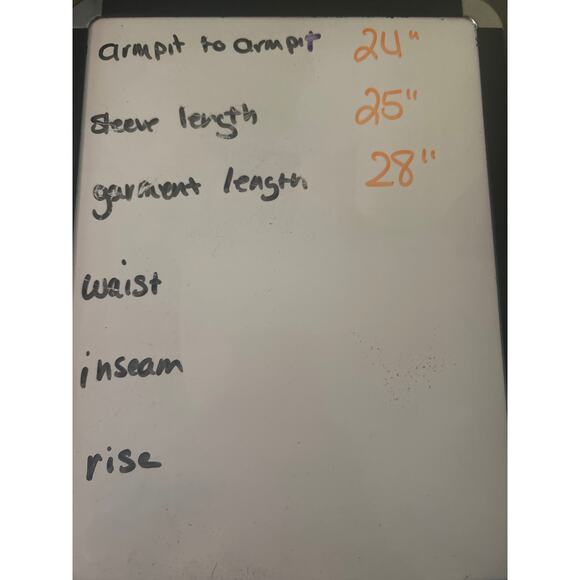 armpit to armpit 24"
sleeve length 25"
garment length 28"
waist
inseam
rise